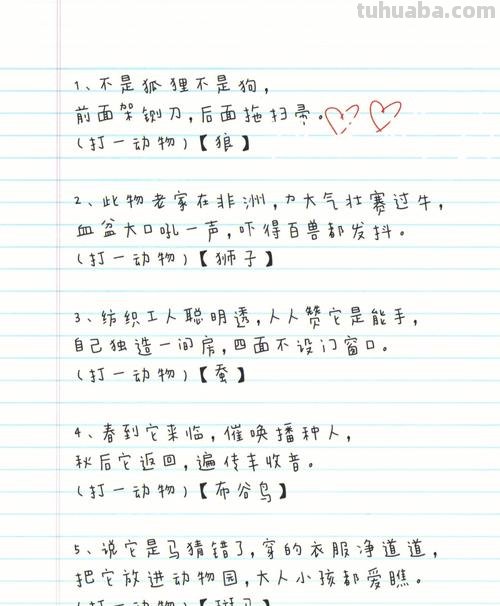 tuhuaba.com
1、不是狐狸不是狗，
前面架铡刀，后面拖扫帚。
(打一动物)【狼】
2、此物老家在非洲，力大气壮赛过牛，
血盆大口吼一声，吓得百兽都发抖。
(打一动物)【狮子】
3、纺织工人聪明透，人人赞它是能手，
自己独造一间房，四面不设门窗口。
(打一动物)【蚕】
4、春到它来临，催唤播种人，
秋后它返回，遍传丰收音。
(打一动物)【布谷鸟】
5、说它是马猜错了，穿的衣服净道道，
把它放进动物园，大人小孩都爱瞧。
(打一动物)【斑马】